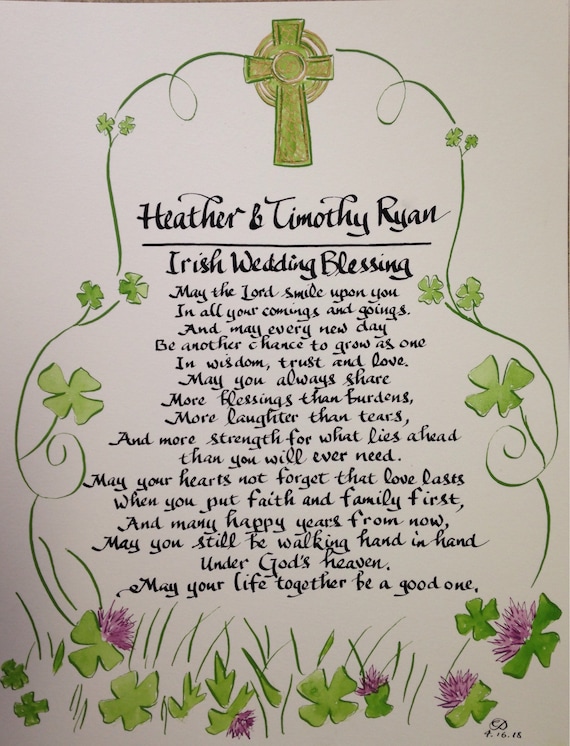 Heather & Timothy Ryan
Irish Wedding Blessing
May the Lord smile upon you
In all your comings and goings.
And may every new day
Be another chance to grow as one
In wisdom, trust and love.
May you always share
More blessings than burdens,
More laughter than tears,
And more strength for what lies ahead
than you will ever need.
May your hearts not forget that love lasts
When you put faith and family first,
And many happy years from now,
May you still be walking hand in hand
Under God's heaven.
May your life together be a good one.
4.16.18